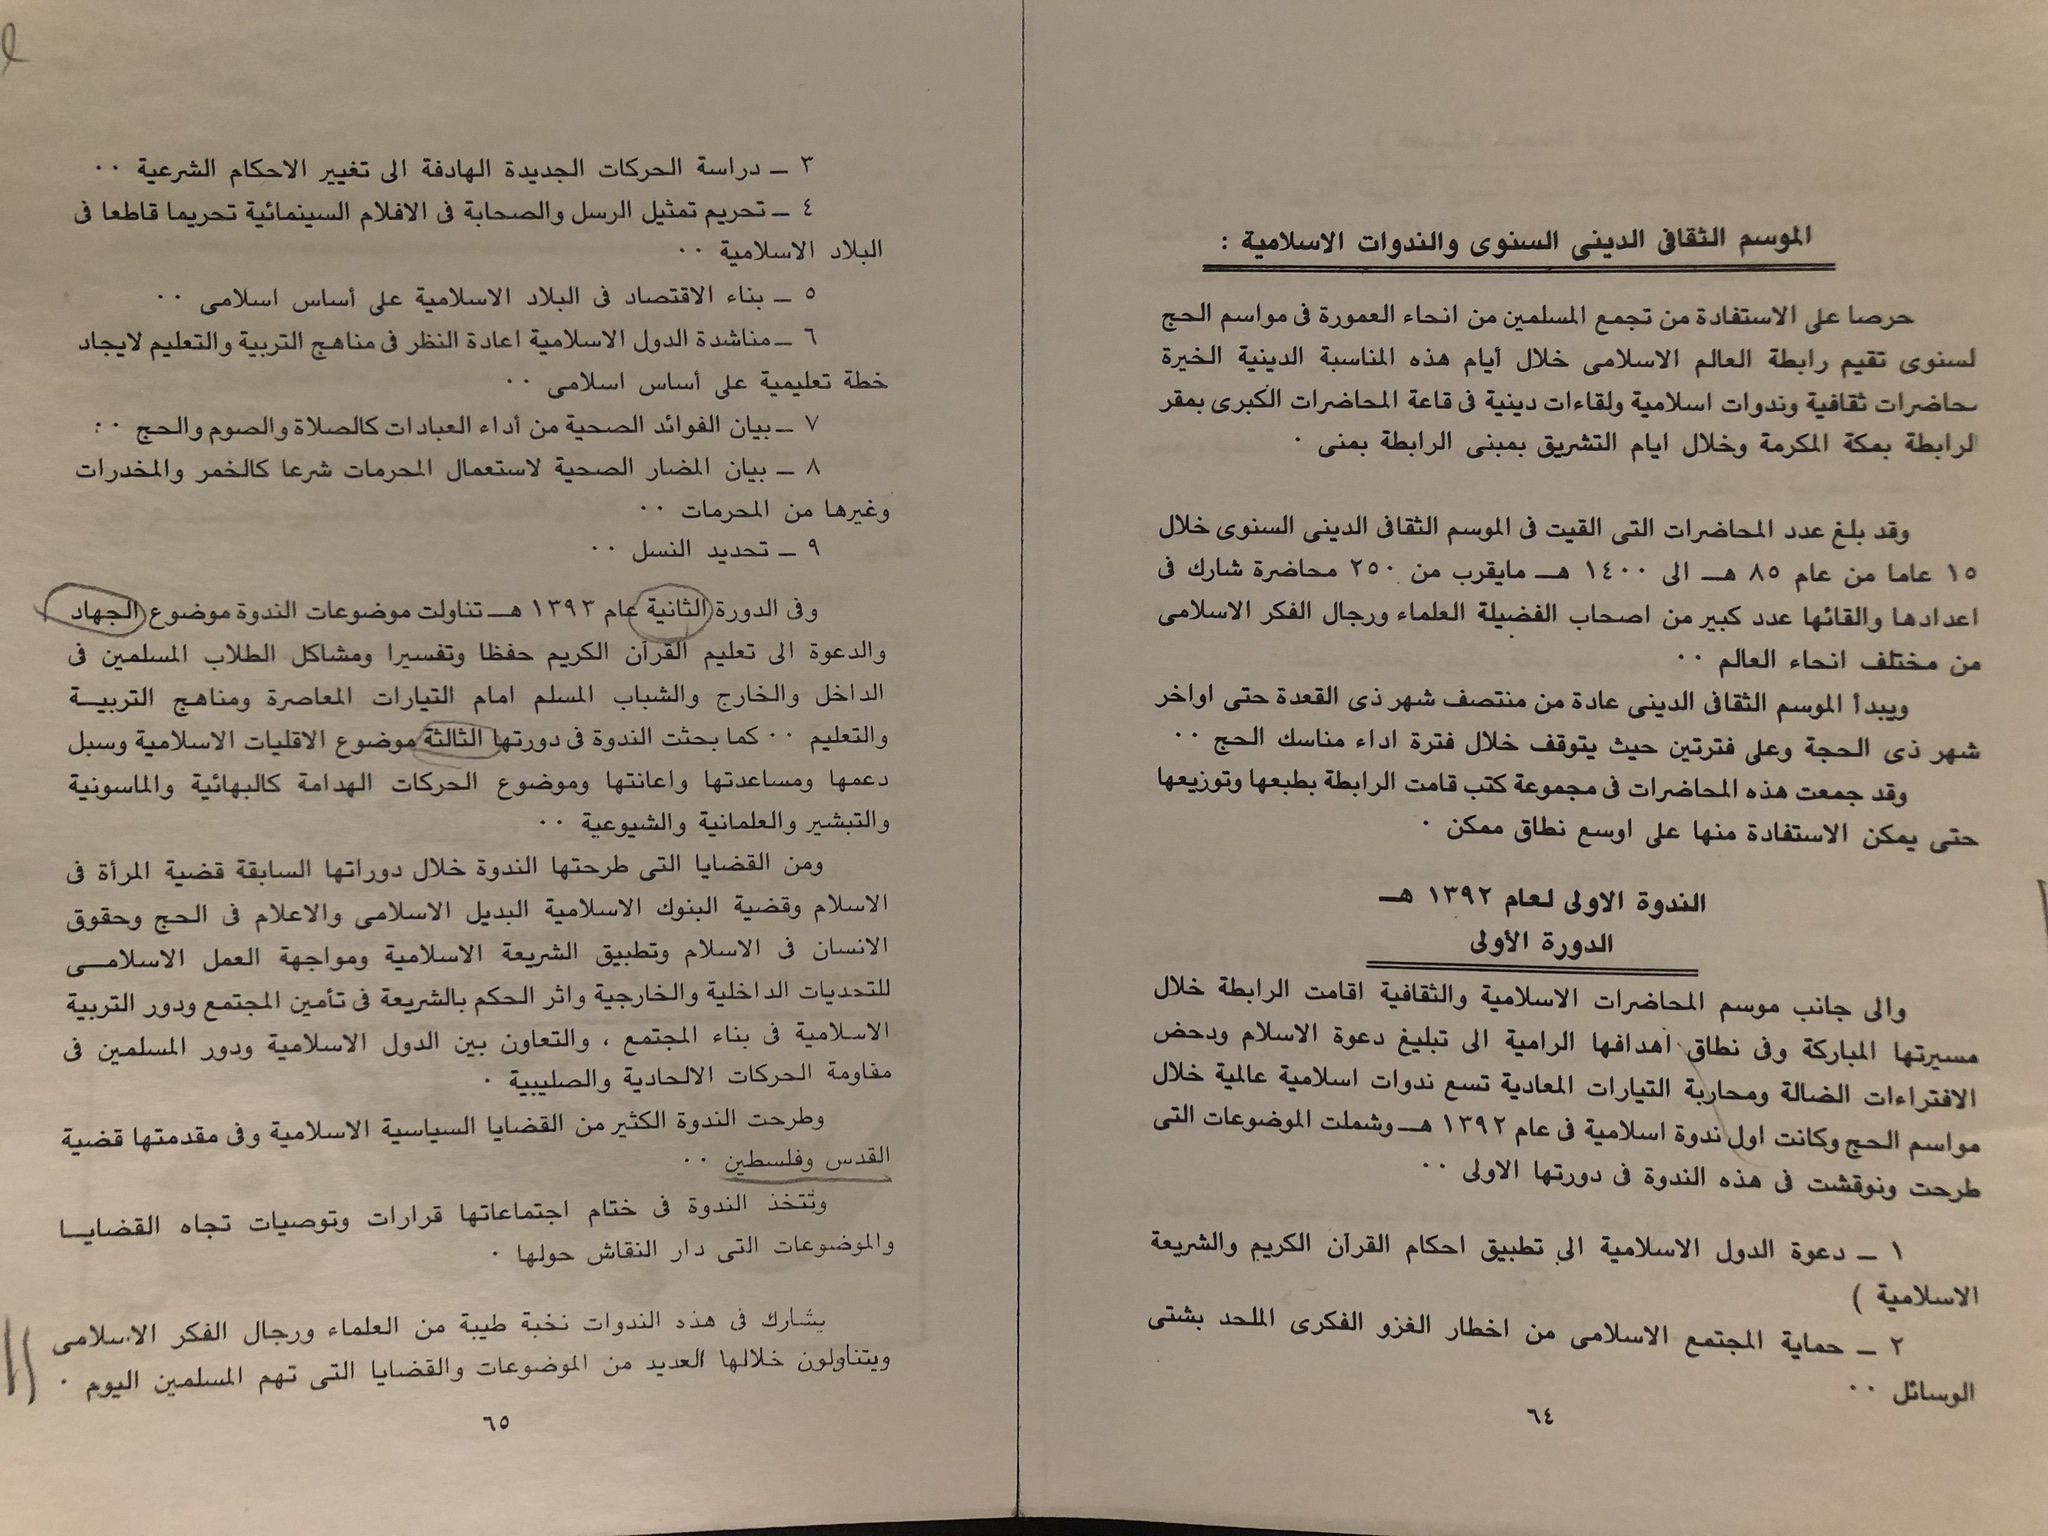 الموسم الثقافى الدينى السنوى والندوات الاسلامية :
حرصا على الاستفادة من تجمع المسلمين من انحاء العمورة فى مواسم الحج
لسنوى تقيم رابطة العالم الاسلامى خلال أيام هذه المناسبة الدينية الخيرة
محاضرات ثقافية وندوات اسلامية ولقاءات دينية فى قاعة المحاضرات الكبرى بمقر
لرابطة بمكة المكرمة وخلال ايام التشريق بمبنى الرابطة بمنى ٠
وقد بلغ عدد المحاضرات التى القيت فى الموسم الثقافى الدينى السنوى خلال
١٥ عاما من عام ٨٥ هـ الى ١٤٠٠ هـ مايقرب من ٢٥٠ محاضرة شارك فى
اعدادها والقائها عدد كبير من اصحاب الفضيلة العلماء ورجال الفكر الاسلامى
من مختلف انحاء العالم ٠٠
ويبدأ الموسم الثقافى الدينى عادة من منتصف شهر ذى القعدة حتى اواخر
شهر ذى الحجة وعلى فترتين حيث يتوقف خلال فترة اداء مناسك الحج ٠٠
وقد جمعت هذه المحاضرات فى مجموعة كتب قامت الرابطة بطبعها وتوزيعها
حتى يمكن الاستفادة منها على اوسع نطاق ممكن ٠
الندوة الاولى لعام ١٣٩٢ هـ
الدورة الأولى
والى جانب موسم المحاضرات الاسلامية والثقافية اقامت الرابطة خلال
مسيرتها المباركة وفى نطاق اهدافها الرامية الى تبليغ دعوة الاسلام ودحض
الافتراءات الضالة ومحاربة التيارات المعادية تسع ندوات اسلامية عالمية خلال
مواسم الحج وكانت اول ندوة اسلامية فى عام ١٣٩٢ هـ وشملت الموضوعات التى
طرحت ونوقشت فى هذه الندوة فى دورتها الاولى ٠٠
١ ـ دعوة الدول الاسلامية الى تطبيق احكام القرآن الكريم والشريعة
الاسلامية )
٢ ـ حماية المجتمع الاسلامى من اخطار الغزو الفكرى الملحد بشتى
الوسائل ٠٠
٦٤
٣ ـ دراسة الحركات الجديدة الهادفة الى تغيير الاحكام الشرعية ٠٠
٤ ـ تحريم تمثيل الرسل والصحابة فى الافلام السينمائية تحريما قاطعا فى
البلاد الاسلامية ٠٠
٥ ـ بناء الاقتصاد فى البلاد الاسلامية على أساس اسلامى ٠٠
٦ ـ مناشدة الدول الاسلامية اعادة النظر فى مناهج التربية والتعليم لايجاد
خطة تعليمية على أساس اسلامى ٠٠
٧ ـ بيان الفوائد الصحية من أداء العبادات كالصلاة والصوم والحج ٠٠
٨ ـ بيان المضار الصحية لاستعمال المحرمات شرعا كالخمر والمخدرات
وغيرها من المحرمات ٠٠
٩ ـ تحديد النسل ٠٠
وفى الدورة الثانية عام ١٣٩٣ هـ تناولت موضوعات الندوة موضوع الجهاد
والدعوة الى تعليم القرآن الكريم حفظا وتفسيرا ومشاكل الطلاب المسلمين فى
الداخل والخارج والشباب المسلم امام التيارات المعاصرة ومناهج التربيـــة
والتعليم ٠٠ كما بحثت الندوة فى دورتها الثالثة موضوع الاقليات الاسلامية وسبل
دعمها ومساعدتها واعانتها وموضوع الحركات الهدامة كالبهائية والماسونية
والتبشير والعلمانية والشيوعية ٠٠
ومن القضايا التى طرحتها الندوة خلال دوراتها السابقة قضية المرأة فى
الاسلام وقضية البنوك الاسلامية البديل الاسلامى والاعلام فى الحج وحقوق
الانسان فى الاسلام وتطبيق الشريعة الاسلامية ومواجهة العمل الاسلامـــى
للتحديات الداخلية والخارجية واثر الحكم بالشريعة فى تأمين المجتمع ودور التربية
الاسلامية فى بناء المجتمع ، والتعاون بين الدول الاسلامية ودور المسلمين فى
مقاومة الحركات الالحادية والصليبية ٠
وطرحت الندوة الكثير من القضايا السياسية الاسلامية وفى مقدمتها قضية
القدس وفلسطين ٠٠
وتتخذ الندوة فى ختام اجتماعاتها قرارات وتوصيات تجاه القضايـــا
والموضوعات التى دار النقاش حولها ٠
يشارك فى هذه الندوات نخبة طيبة من العلماء ورجال الفكر الاسلامى
ويتناولون خلالها العديد من الموضوعات والقضايا التى تهم المسلمين اليوم ٠
٦٥